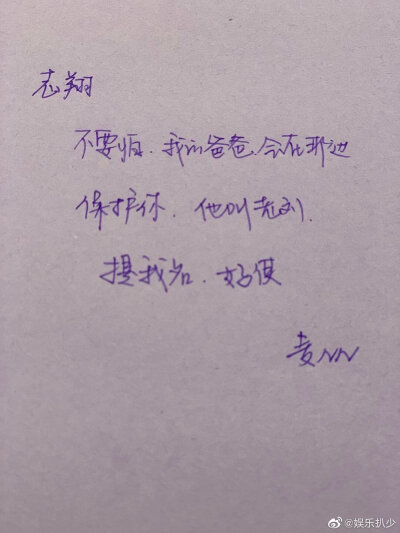 志翔
不要怕.我的爸爸会在那边
保护你.他叫老刘.
提我名.好使
麦NN
@娱乐扒少